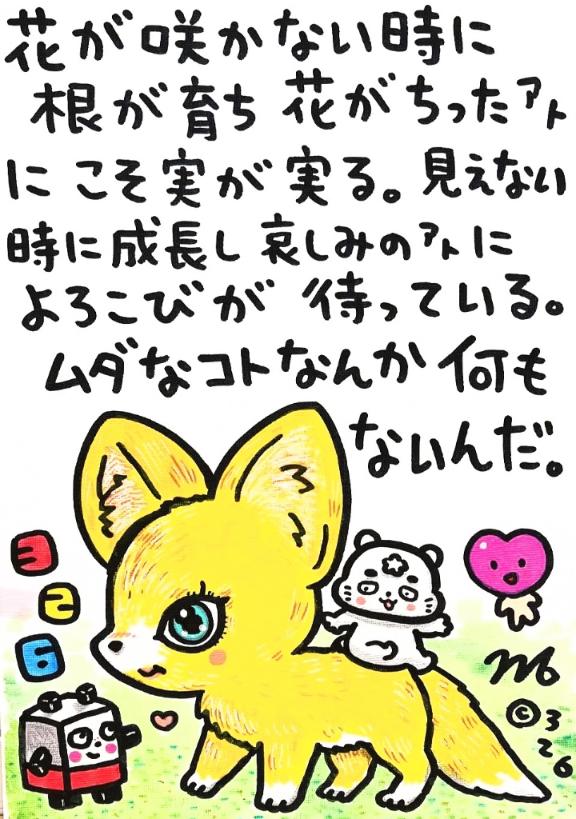 花が咲かない時に
根が育ち 花がちったアト
にこそ実が実る。見えない
時に成長し 哀しみのアトに
よろこびが 待っている。
ムダなコトなんか何も
ないんだ。
3
2
6
©326